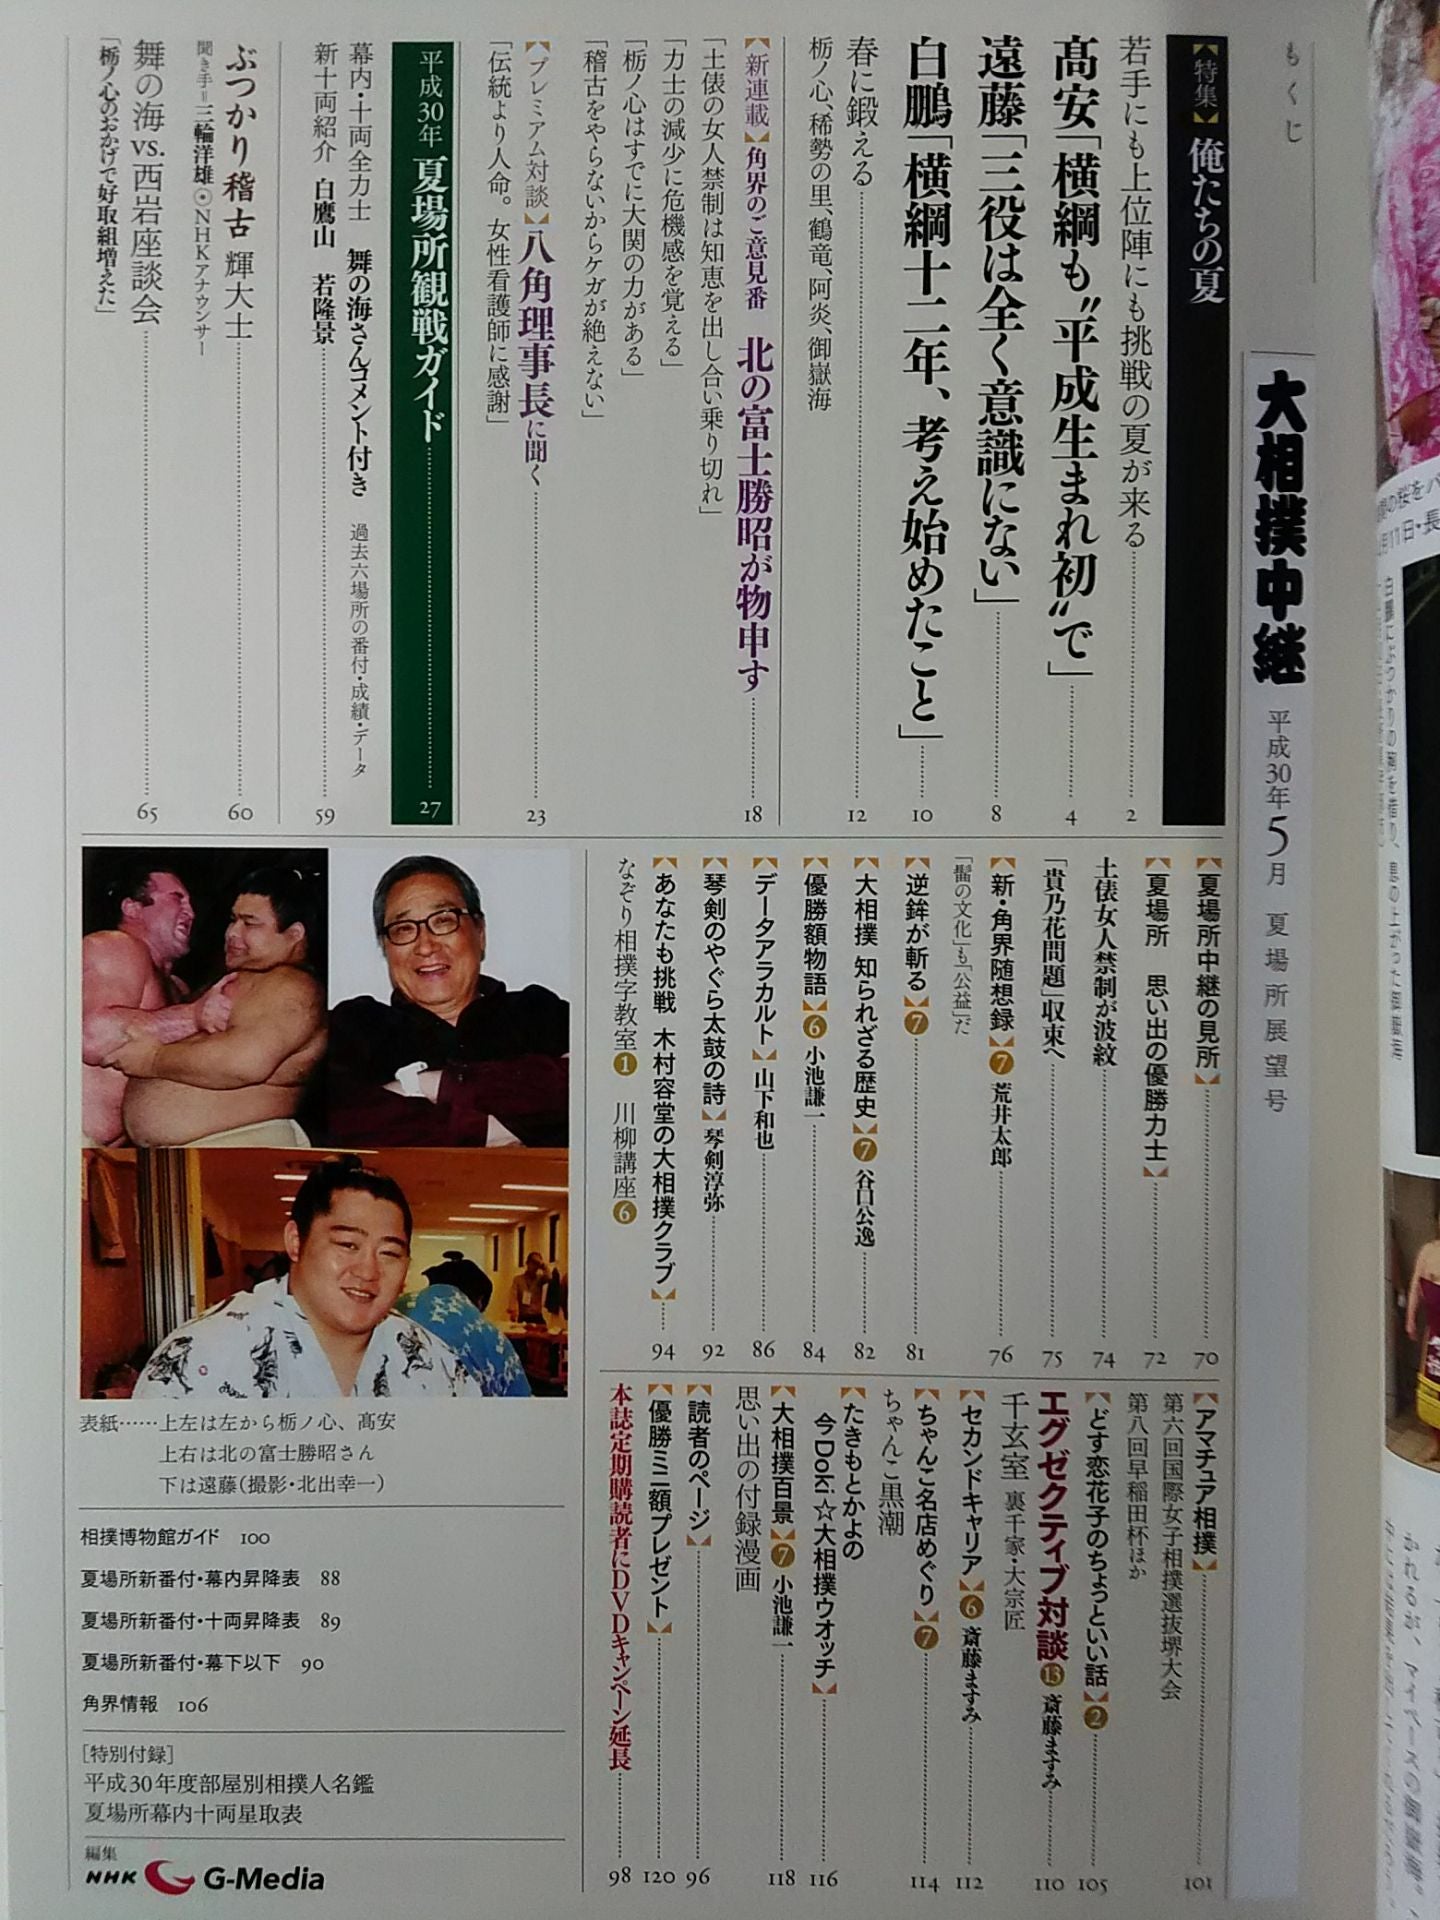 もくじ
大相撲中継 平成30年5月 夏場所展望号
【特集】俺たちの夏
若手にも上位陣にも挑戦の夏が来る……2
髙安「横綱も〝平成生まれ初〟で」……4
遠藤「三役は全く意識にない」……8
白鵬「横綱十二年、考え始めたこと」……10
春に鍛える……12
栃ノ心、稀勢の里、鶴竜、阿炎、御嶽海
【新連載】角界のご意見番 北の富士勝昭が物申す……18
「土俵の女人禁制は知恵を出し合い乗り切れ」
「力士の減少に危機感を覚える」
「栃ノ心はすでに大関の力がある」
「稽古をやらないからケガが絶えない」
【プレミアム対談】八角理事長に聞く……23
「伝統より人命。女性看護師に感謝」
平成30年 夏場所観戦ガイド……27
幕内・十両全力士 舞の海さんコメント付き 過去六場所の番付・成績・データ
新十両紹介 白鷹山 若隆景……59
ぶつかり稽古 輝大士……60
聞き手=三輪洋雄◉NHKアナウンサー
舞の海vs.西岩座談会……65
「栃ノ心のおかげで好取組増えた」
【夏場所中継の見所】……70
【夏場所 思い出の優勝力士】……72
土俵女人禁制が波紋……74
「貴乃花問題」収束へ……75
【新・角界随想録】❼荒井太郎……76
「髷の文化」も「公益」だ
【逆鉾が斬る】❼……81
【大相撲 知られざる歴史】❼谷口公逸……82
【優勝額物語】❻小池謙一……84
【データアラカルト】山下和也……86
【琴剣のやぐら太鼓の詩】琴剣淳弥……92
【あなたも挑戦 木村容堂の大相撲クラブ】……94
なぞり相撲字教室❶ 川柳講座❻
【アマチュア相撲】……101
第六回国際女子相撲選抜堺大会
第八回早稲田杯ほか
【どす恋花子のちょっといい話】❷……105
エグゼクティブ対談⓭斎藤ますみ……110
千玄室 裏千家・大宗匠
【セカンドキャリア】❻斎藤ますみ……112
【ちゃんこ名店めぐり】❼……114
ちゃんこ黒潮
【たきもとかよの
今Doki☆大相撲ウオッチ】……116
【大相撲百景】❼小池謙一……118
思い出の付録漫画
【読者のページ】……96
【優勝ミニ額プレゼント】……120
本誌定期購読者にDVDキャンペーン延長……98
表紙……上左は左から栃ノ心、髙安
上右は北の富士勝昭さん
下は遠藤(撮影・北出幸一)
相撲博物館ガイド 100
夏場所新番付・幕内昇降表 88
夏場所新番付・十両昇降表 89
夏場所新番付・幕下以下 90
角界情報 106
[特別付録]
平成30年度部屋別相撲人名鑑
夏場所幕内十両星取表
編集
NHK G-Media